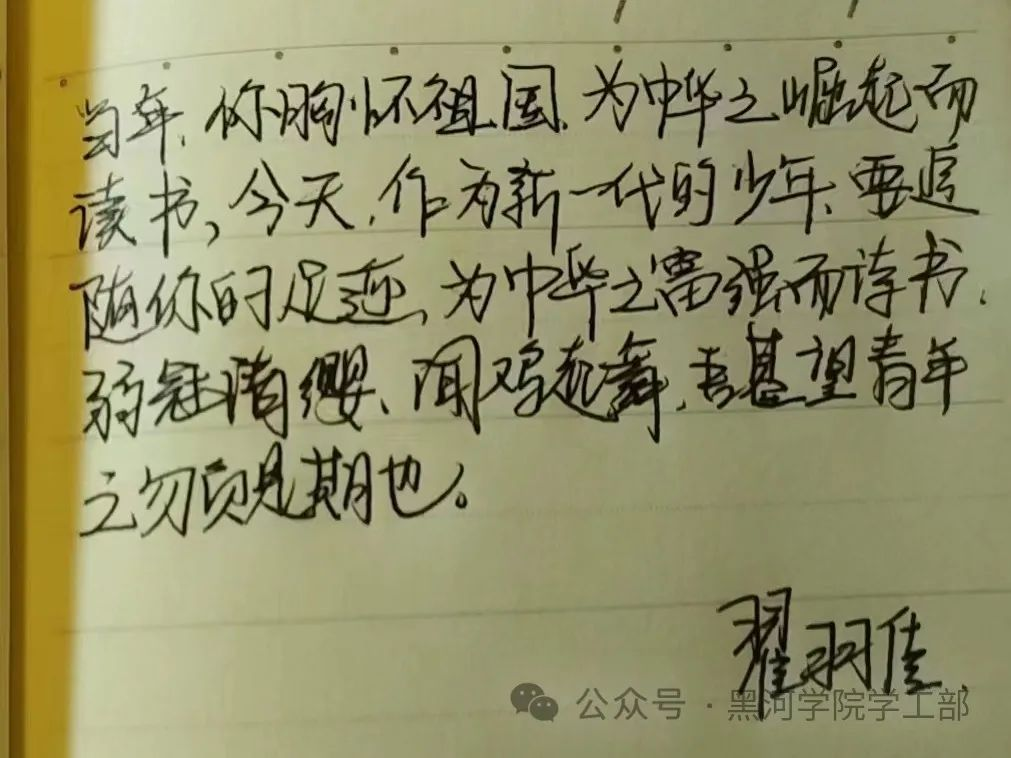 当年,你胸怀祖国,为中华之崛起而
读书,今天,作为新一代的少年,要追
随你的足迹,为中华之富强而读书,
弱冠请缨、闻鸡起舞,吾甚望青年
之勿负是期也。
翟羽佳
公众号·黑河学院学工部